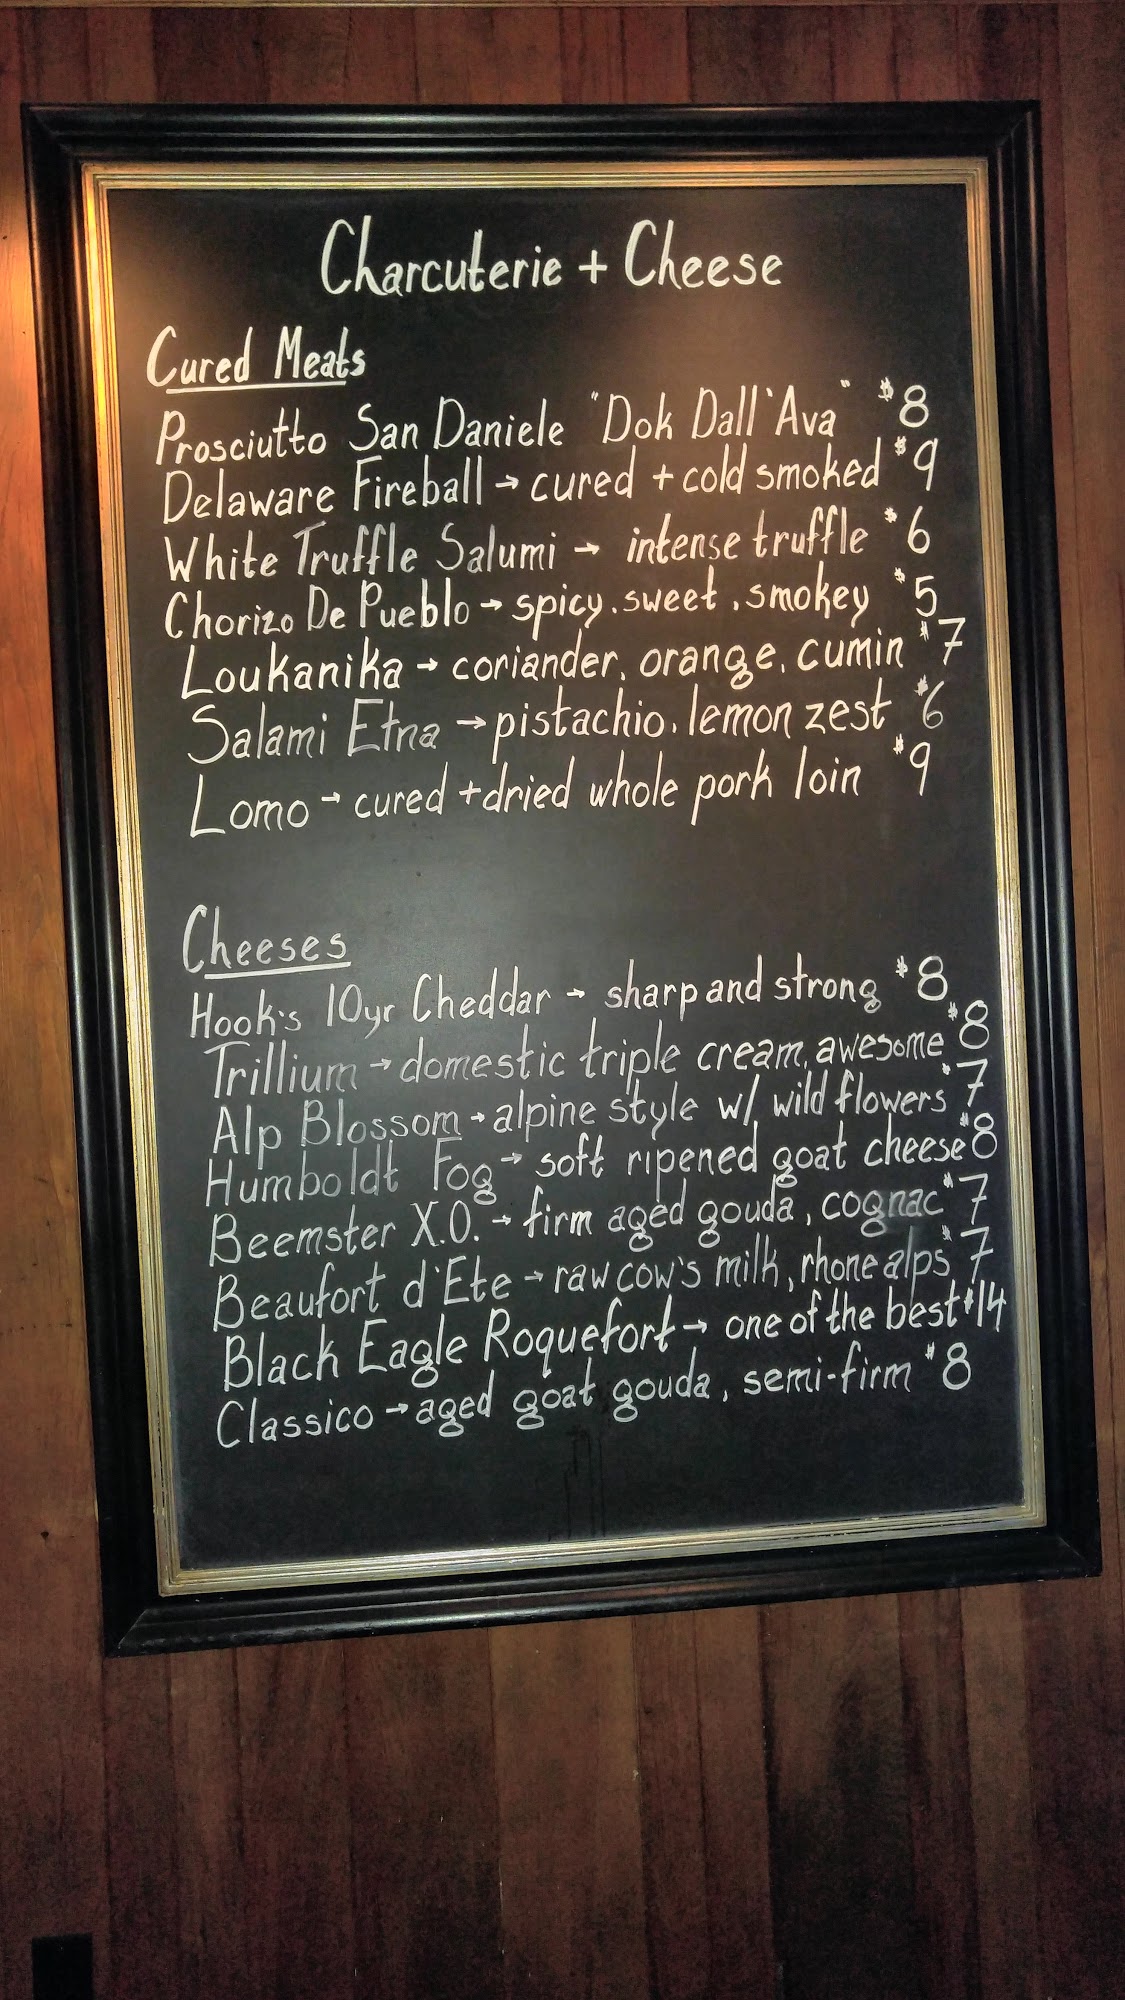 Charcuterie + Cheese
Cured Meats
Prosciutto San Daniele "Dok Dall'Ava" $8
Delaware Fireball → cured + cold smoked $9
White Truffle Salumi → intense truffle $6
Chorizo De Pueblo → spicy, sweet, smokey $5
Loukanika → coriander, orange, cumin $7
Salami Etna → pistachio, lemon zest $6
Lomo → cured + dried whole pork loin $9
Cheeses
Hook's 10yr Cheddar → sharp and strong $8
Trillium → domestic triple cream, awesome $8
Alp Blossom → alpine style w/ wild flowers $7
Humboldt Fog → soft ripened goat cheese $8
Beemster X.O. → firm aged gouda, cognac $7
Beaufort d'Ete → raw cow's milk, rhone alps $7
Black Eagle Roquefort → one of the best $14
Classico → aged goat gouda, semi-firm $8